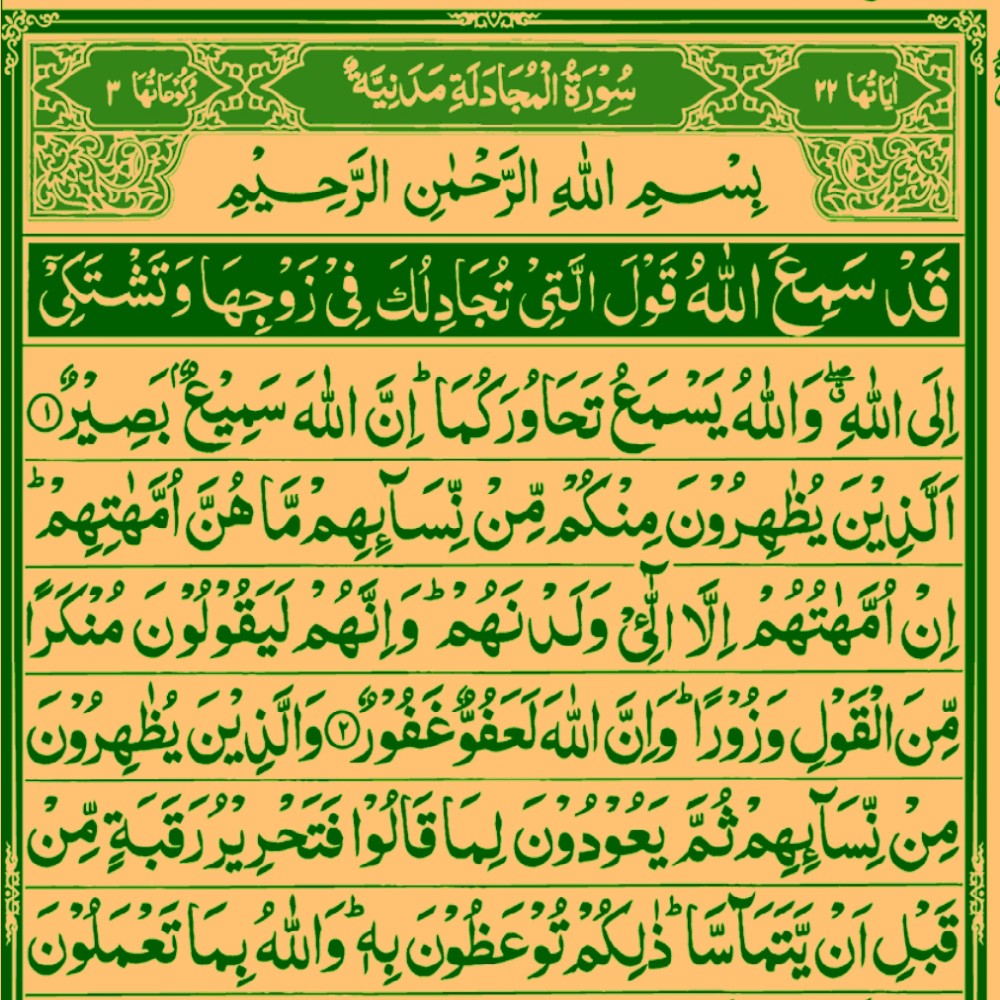 اٰيَاتُهَا ٢٢ سُوْرَةُ الْمُجَادَلَةِ مَدَنِيَّةٌ رُكُوْعَاتُهَا ٣
بِسْمِ اللّٰهِ الرَّحْمٰنِ الرَّحِيْمِ
قَدْ سَمِعَ اللّٰهُ قَوْلَ الَّتِيْ تُجَادِلُكَ فِيْ زَوْجِهَا وَتَشْتَكِيْۤ
اِلَى اللّٰهِ ۖۗ وَاللّٰهُ يَسْمَعُ تَحَاوُرَكُمَا ؕ اِنَّ اللّٰهَ سَمِيْعٌۢ بَصِيْرٌ ۝١
اَلَّذِيْنَ يُظٰهِرُوْنَ مِنْكُمْ مِّنْ نِّسَآئِهِمْ مَّا هُنَّ اُمَّهٰتِهِمْ ؕ
اِنْ اُمَّهٰتُهُمْ اِلَّا الّٰٓـِٔيْ وَلَدْنَهُمْ ؕ وَاِنَّهُمْ لَيَقُوْلُوْنَ مُنْكَرًا
مِّنَ الْقَوْلِ وَزُوْرًا ؕ وَاِنَّ اللّٰهَ لَعَفُوٌّ غَفُوْرٌ ۝٢ وَالَّذِيْنَ يُظٰهِرُوْنَ
مِنْ نِّسَآئِهِمْ ثُمَّ يَعُوْدُوْنَ لِمَا قَالُوْا فَتَحْرِيْرُ رَقَبَةٍ مِّنْ
قَبْلِ اَنْ يَّتَمَآسَّا ؕ ذٰلِكُمْ تُوْعَظُوْنَ بِهٖ ؕ وَاللّٰهُ بِمَا تَعْمَلُوْنَ